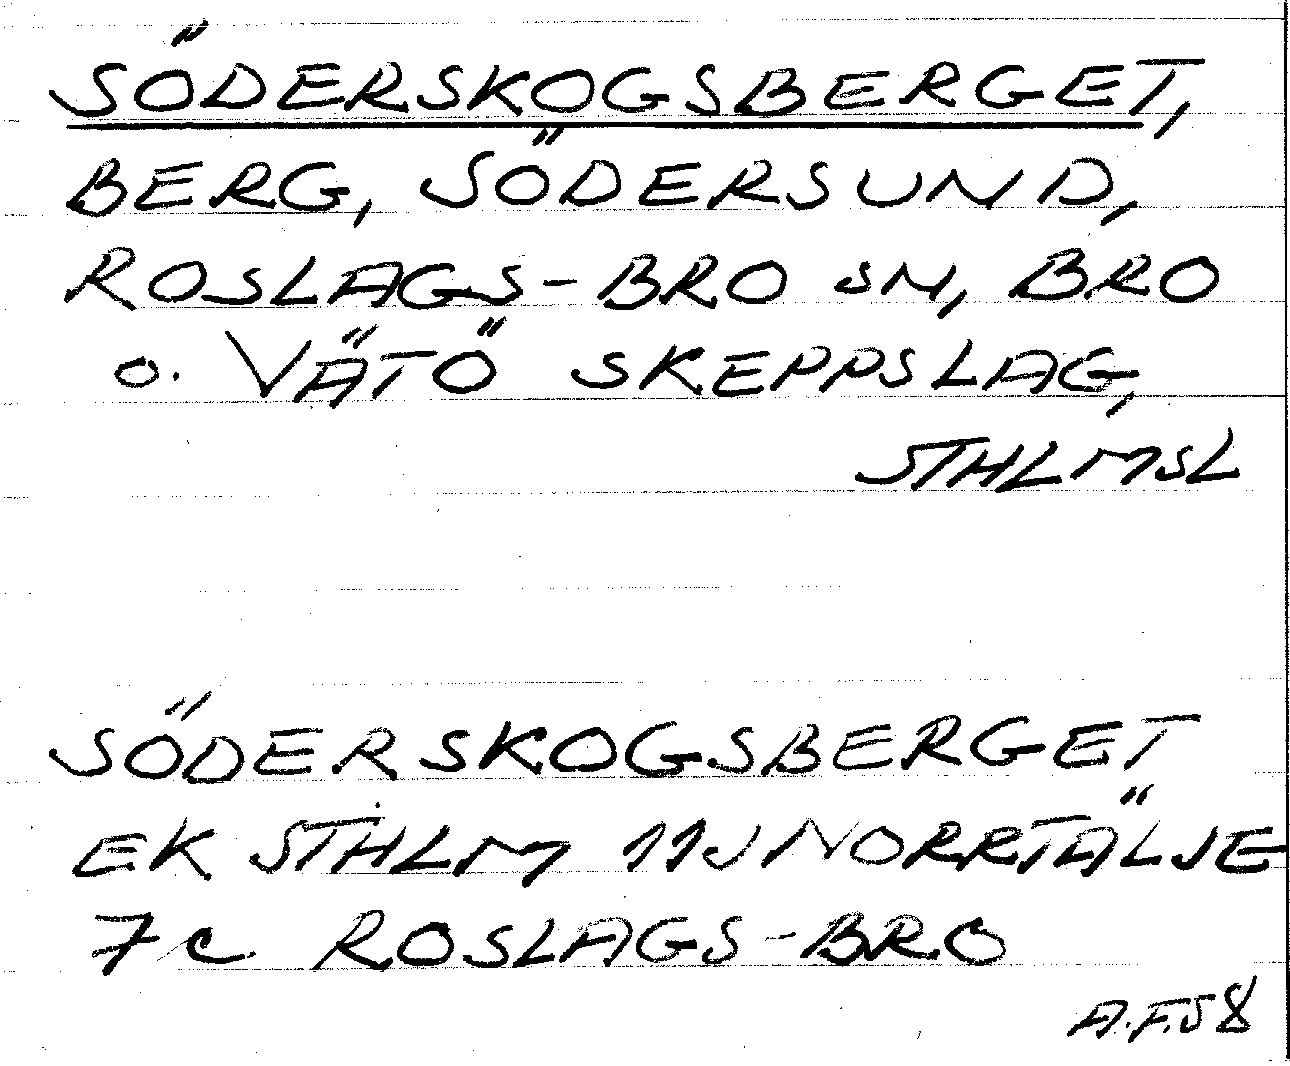 SÖDERSKOGSBERGET,
BERG, SÖDERSUND,
ROSLAGS-BRO SN, BRO
O. VÄTÖ SKEPPSLAG,
STHLMSL
SÖDERSKOGSBERGET
EK STHLM 11J NORRTÄLJE
7C ROSLAGS-BRO
A.F.58